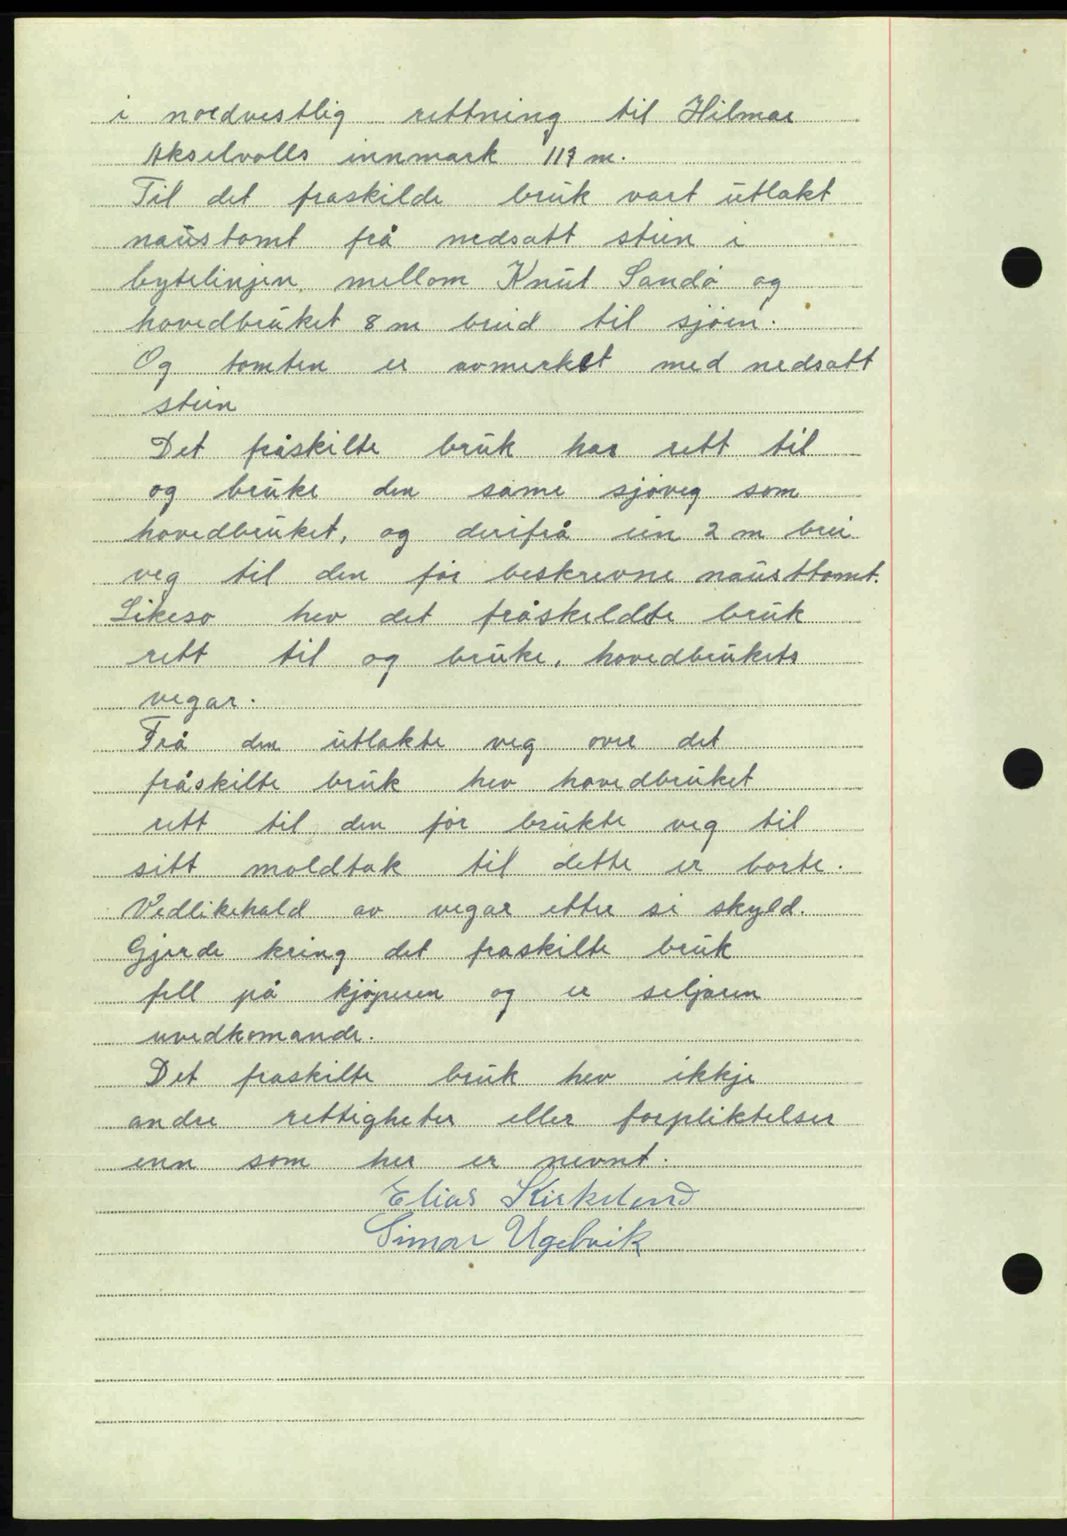 i nordvestlig rettning til Hilmar
Akselvolls innmark 119 m.
Til det fraskilde bruk vart utlakt
naustomt frå nedsatt stein i
bytelinjen mellom Knut Sandø og
hovedbruket 8 m breid til sjøen.
Og tomten er avmerket med nedsatt
stein
Det fråskilte bruk har rett til
og bruke den same sjøveg som
hovedbruket, og derifrå ein 2 m brei
veg til den før beskrevne nausttomt.
Likeso hev det fråskeldte bruk
rett til og bruke, hovedbrukets
vegar.
Frå den utlakte veg over det
fråskilte bruk hev hovedbruket
rett til den før brukte veg til
sitt moldtak til dette er borte.
Vedlikehald av vegar etter si skyld.
Gjerde kring det fraskilte bruk
fell på kjøperen og er seljaren
uvedkomande.
Det fraskilte bruk hev ikkje
andre rettigheter eller forpliktelser
enn som her er nevnt.
Elias Kirkeland
Simar Ugelvik